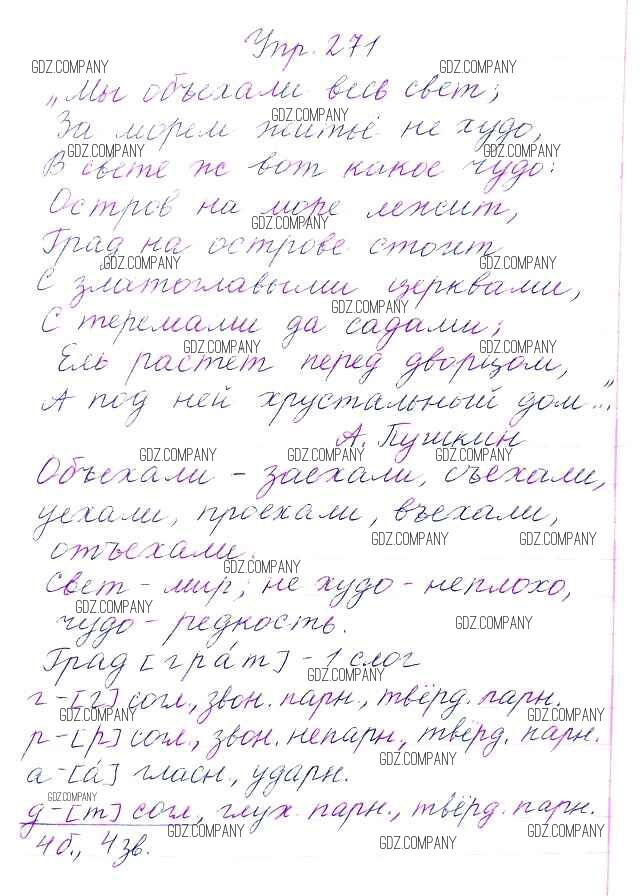 Упр. 271
GDZ.COMPANY GDZ.COMPANY
„Мы объехали весь свет;
GDZ.COMPANY
За морем житьё не худо,
GDZ.COMPANY GDZ.COMPANY
В свете ж вот какое чудо:
Остров на море лежит,
GDZ.COMPANY
Град на острове стоит
GDZ.COMPANY GDZ.COMPANY
С златоглавыми церквами,
GDZ.COMPANY
С теремами да садами;
GDZ.COMPANY GDZ.COMPANY
Ель растёт перед дворцом,
А под ней хрустальный дом..."
А. Пушкин
GDZ.COMPANY GDZ.COMPANY GDZ.COMPANY
Объехали – заехали, съехали,
уехали, проехали, въехали,
GDZ.COMPANY GDZ.COMPANY
отъехали.
GDZ.COMPANY
Свет – мир; не худо – неплохо,
GDZ.COMPANY
чудо – редкость.
GDZ.COMPANY
Град [гра́т] – 1 слог
GDZ.COMPANY
г – [г] согл., звон. парн., твёрд. парн.
GDZ.COMPANY GDZ.COMPANY
р – [р] согл., звон. непарн., твёрд. парн.
GDZ.COMPANY
а – [а́] гласн., ударн.
GDZ.COMPANY
д – [т] согл., глух. парн., твёрд. парн.
GDZ.COMPANY GDZ.COMPANY
4 б., 4 зв.